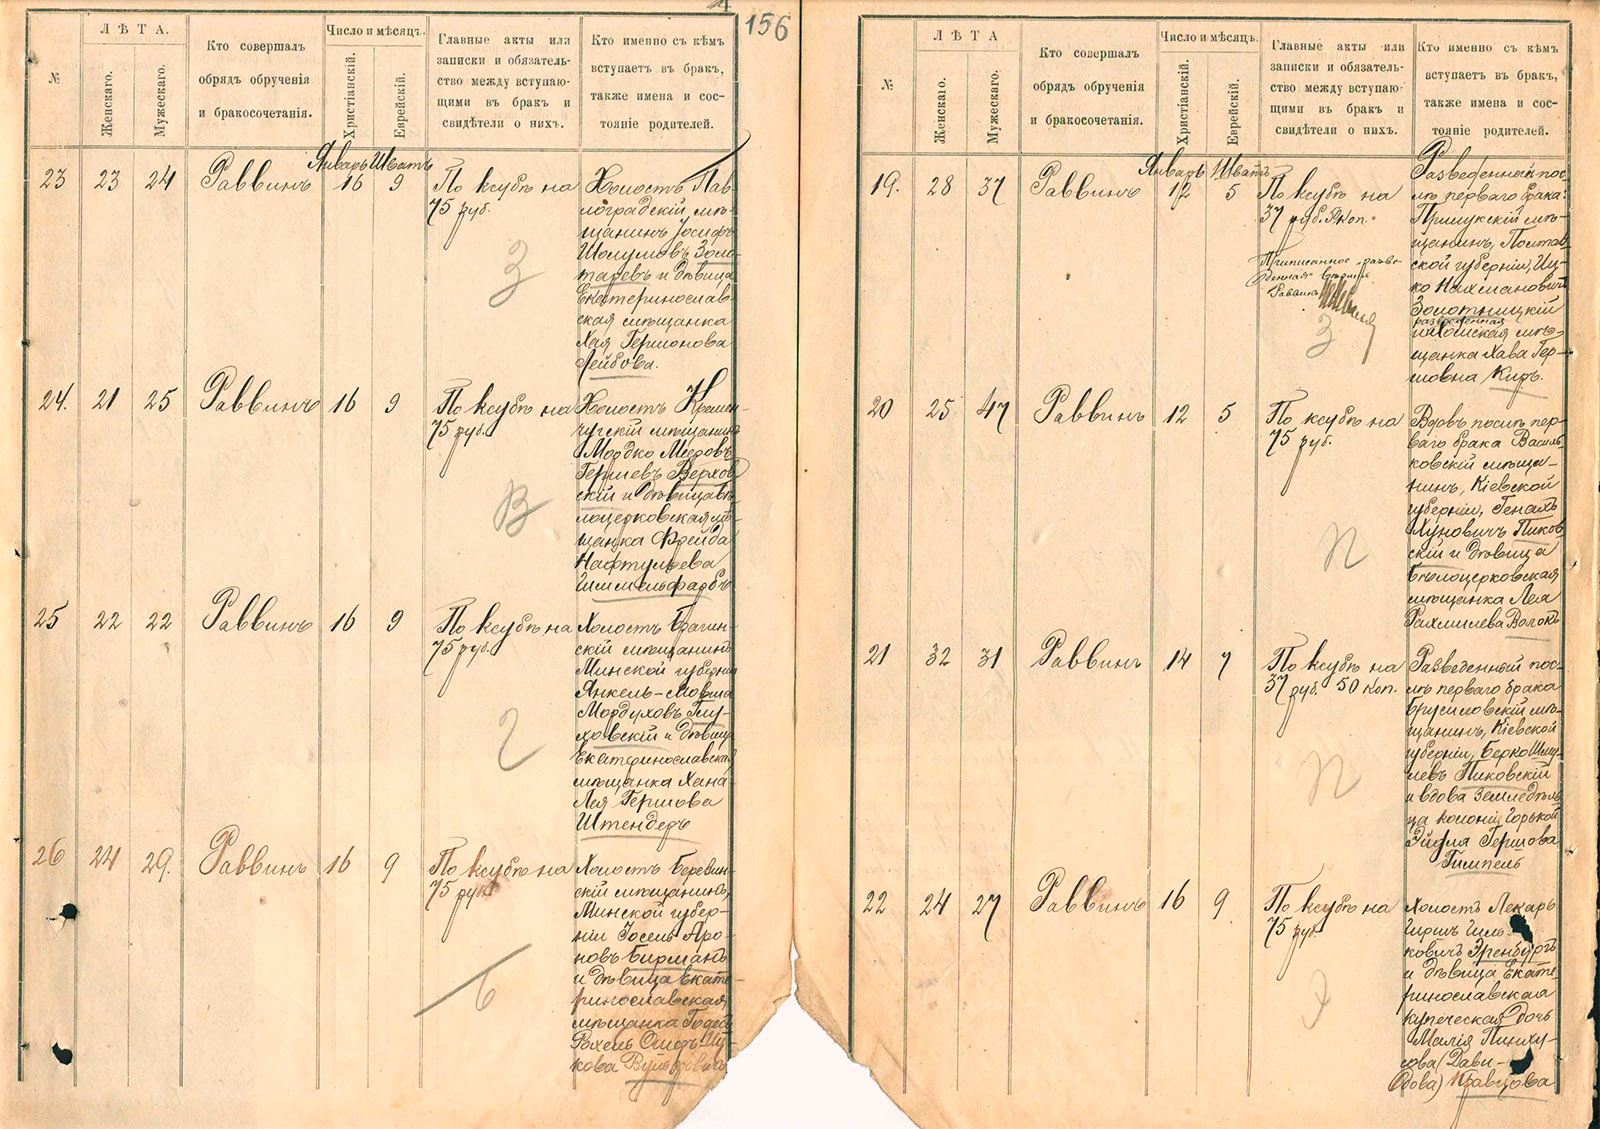 156
№
ЛѢТА.
Женскаго.
Мужескаго.
Кто совершалъ
обрядъ обрученія
и бракосочетанія.
Число и мѣсяцъ.
Христіанскій.
Еврейскій.
Главные акты или
записки и обязатель-
ство между вступаю-
щими въ бракъ и
свидѣтели о нихъ.
Кто именно съ кѣмъ
вступаетъ въ бракъ,
также имена и сос-
тояніе родителей.
23
23
24
Раввинъ
Январь
16
Шватъ
9
По ксубѣ на
75 руб.
З
Холостъ Пав-
лоградскій мѣ-
щанинъ Іосифъ
Шолумовъ Золо-
таревъ и дѣвица
Екатеринослав-
ская мѣщанка
Хая Гершонова
Лейбова.
24.
21
25
Раввинъ
16
9
По ксубѣ на
75 руб.
В
Холостъ Кремен-
чугскій мѣщанинъ
Мордко Мееровъ
Гершевъ Верхов
скій и дѣвица Бѣ-
лоцерковская мѣ-
щанка Фрейда
Нафтульева
Шимельфарбъ
25
22
22
Раввинъ
16
9
По ксубѣ на
75 руб.
Г
Холостъ Брагин-
скій мѣщанинъ
Минской губерніи
Янкель-Мовша
Мордуховъ Глу-
ховскій и дѣвица
Екатеринославская
мѣщанка Хана-
Лея Гершова
Штендеръ
26
24
29.
Раввинъ
16
9
По ксубѣ на
75 руб.
Б
Холостъ Березин-
скій мѣщанинъ,
Минской губер-
ніи Іосель Аро-
новъ Бирманъ
и дѣвица Екате-
ринославская
мѣщанка
Рохель
кова
№
ЛѢТА
Женскаго.
Мужескаго.
Кто совершалъ
обрядъ обрученія
и бракосочетанія.
Число и мѣсяцъ.
Христіанскій.
Еврейскій.
Главные акты или
записки и обязатель-
ство между вступаю-
щими въ бракъ и
свидѣтели о нихъ.
Кто именно съ кѣмъ
вступаетъ въ бракъ,
также имена и сос-
тояніе родителей.
19.
28
37
Раввинъ
Январь
12
Шватъ
5
По ксубѣ на
37 руб. 50 коп.
Приписанное „разве-
денная"
Раввинъ
З
Разведенный пос-
лѣ перваго брака
Прилукскій мѣ-
щанинъ, Полтав-
ской губерніи, Иц-
ко Нахмановичъ
Золотницкій
разведенная
и Хомская мѣ-
щанка Хава Гер-
шовна Киръ.
20
25
47
Раввинъ
12
5
По ксубѣ на
75 руб.
П
Вдовъ послѣ пер-
ваго брака Василь-
ковскій мѣща-
нинъ, Кіевской
губерніи, Генахъ
Хуновичъ Пиков
скій и дѣвица
Бѣлоцерковская
мѣщанка Лея
Рахмилева Волокъ
21
32
31
Раввинъ
14
7
По ксубѣ на
37 руб. 50 коп.
П
Разведенный пос-
лѣ перваго брака
Брусиловскій мѣ-
щанинъ, Кіевской
губерніи, Берко Шму-
левъ Пиковскій
и вдова земледѣль-
ца колоніи Горькой
Эйдля Гершова
Гимпель
22
24
27
Раввинъ
16
9
По ксубѣ на
75 руб.
Э
Холостъ Лекарь
Гиршъ Шль-
ковичъ Эренбургъ
и дѣвица Екате-
ринославская
купеческая дочь
Малія Пинху-
сова (Дави-
дова) Кравцова